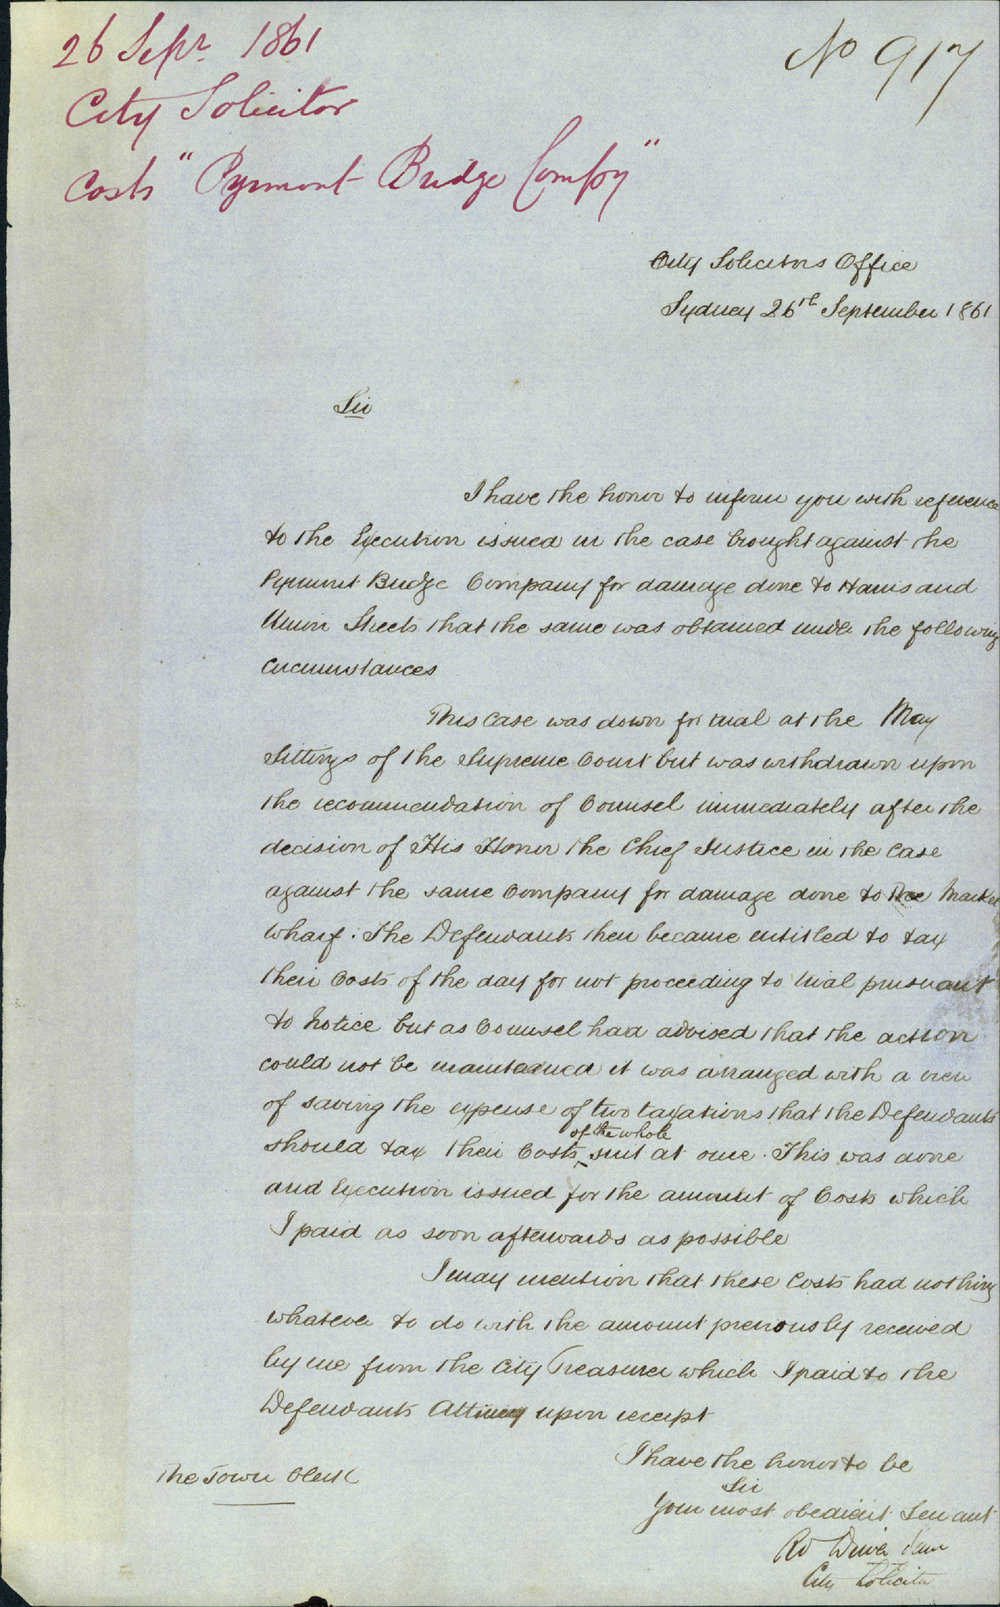 26 Sepr. 1861
No 917
City Solicitor
Costs "Pyrmont Bridge Compy"
City Solicitors Office
Sydney 26th September 1861
Sir
I have the honor to inform you with reference
to the Execution issued in the case brought against the
Pyrmont Bridge Company for damage done to Harris and
Union Streets that the same was obtained under the following
circumstances
This case was down for trial at the May
Sittings of the Supreme Court but was withdrawn upon
the recommendation of Counsel immediately after the
decision of His Honor the Chief Justice in the case
against the same Company for damage done to the Market
Wharf. The Defendants then became entitled to tax
their Costs of the day for not proceeding to trial pursuant
to Notice but as Counsel had advised that the action
could not be maintained it was arranged with a view
of saving the expense of two taxations that the Defendants
should tax their Costs of the whole suit at once. This was done
and Execution issued for the amount of Costs which
I paid as soon afterwards as possible
I may mention that these Costs had nothing
whatever to do with the amount previously received
by me from the City Treasurer which I paid to the
Defendants Attorney upon receipt
I have the honor to be
Sir
Your most obedient Servant
The Town Clerk
City Solicitor